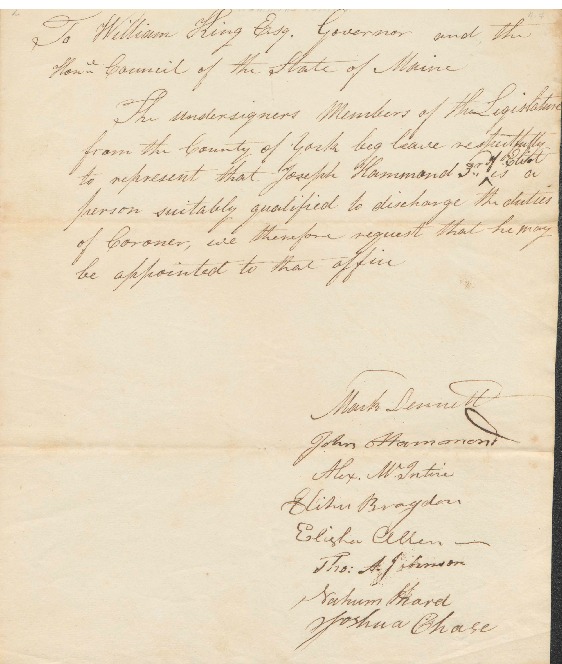 To William King Esq. Governor and the
Honle Council of the State of Maine
The undersigners Members of the Legislature
from the County of York beg leave respectfully
to represent that Joseph Hammond 3rd of Eliot is a
person suitably qualified to discharge the duties
of Coroner, we therefore request that he may
be appointed to that office
Mark Dennett
John Hammond
Alex. McIntire
Elihu Bragdon
Elisha Allen
Tho: A. Johnson
Nahum
Joshua Chase